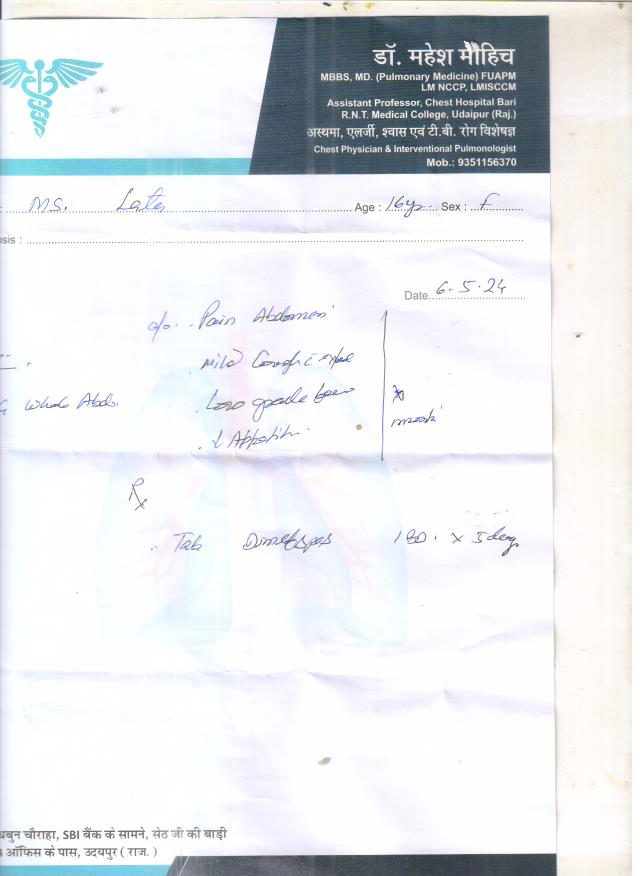 डॉ. महेश मौहिच
MBBS, MD. (Pulmonary Medicine) FUAPM
LM NCCP, LMISCCM
Assistant Professor, Chest Hospital Bari
R.N.T. Medical College, Udaipur (Raj.)
अस्थमा, एलर्जी, श्वास एवं टी.बी. रोग विशेषज्ञ
Chest Physician & Interventional Pulmonologist
Mob.: 9351156370
: MS. Lata Age : 16y Sex : F
osis :
Date 6.5.24
c/o. Pain Abdomen
Mild Cough
Low grade fever
Whole Abd.
↓ Appetite
Rx
Tab BD. x 5 days
बुन चौराहा, SBI बैंक के सामने, सेठ जी की बाड़ी
ऑफिस के पास, उदयपुर ( राज. )